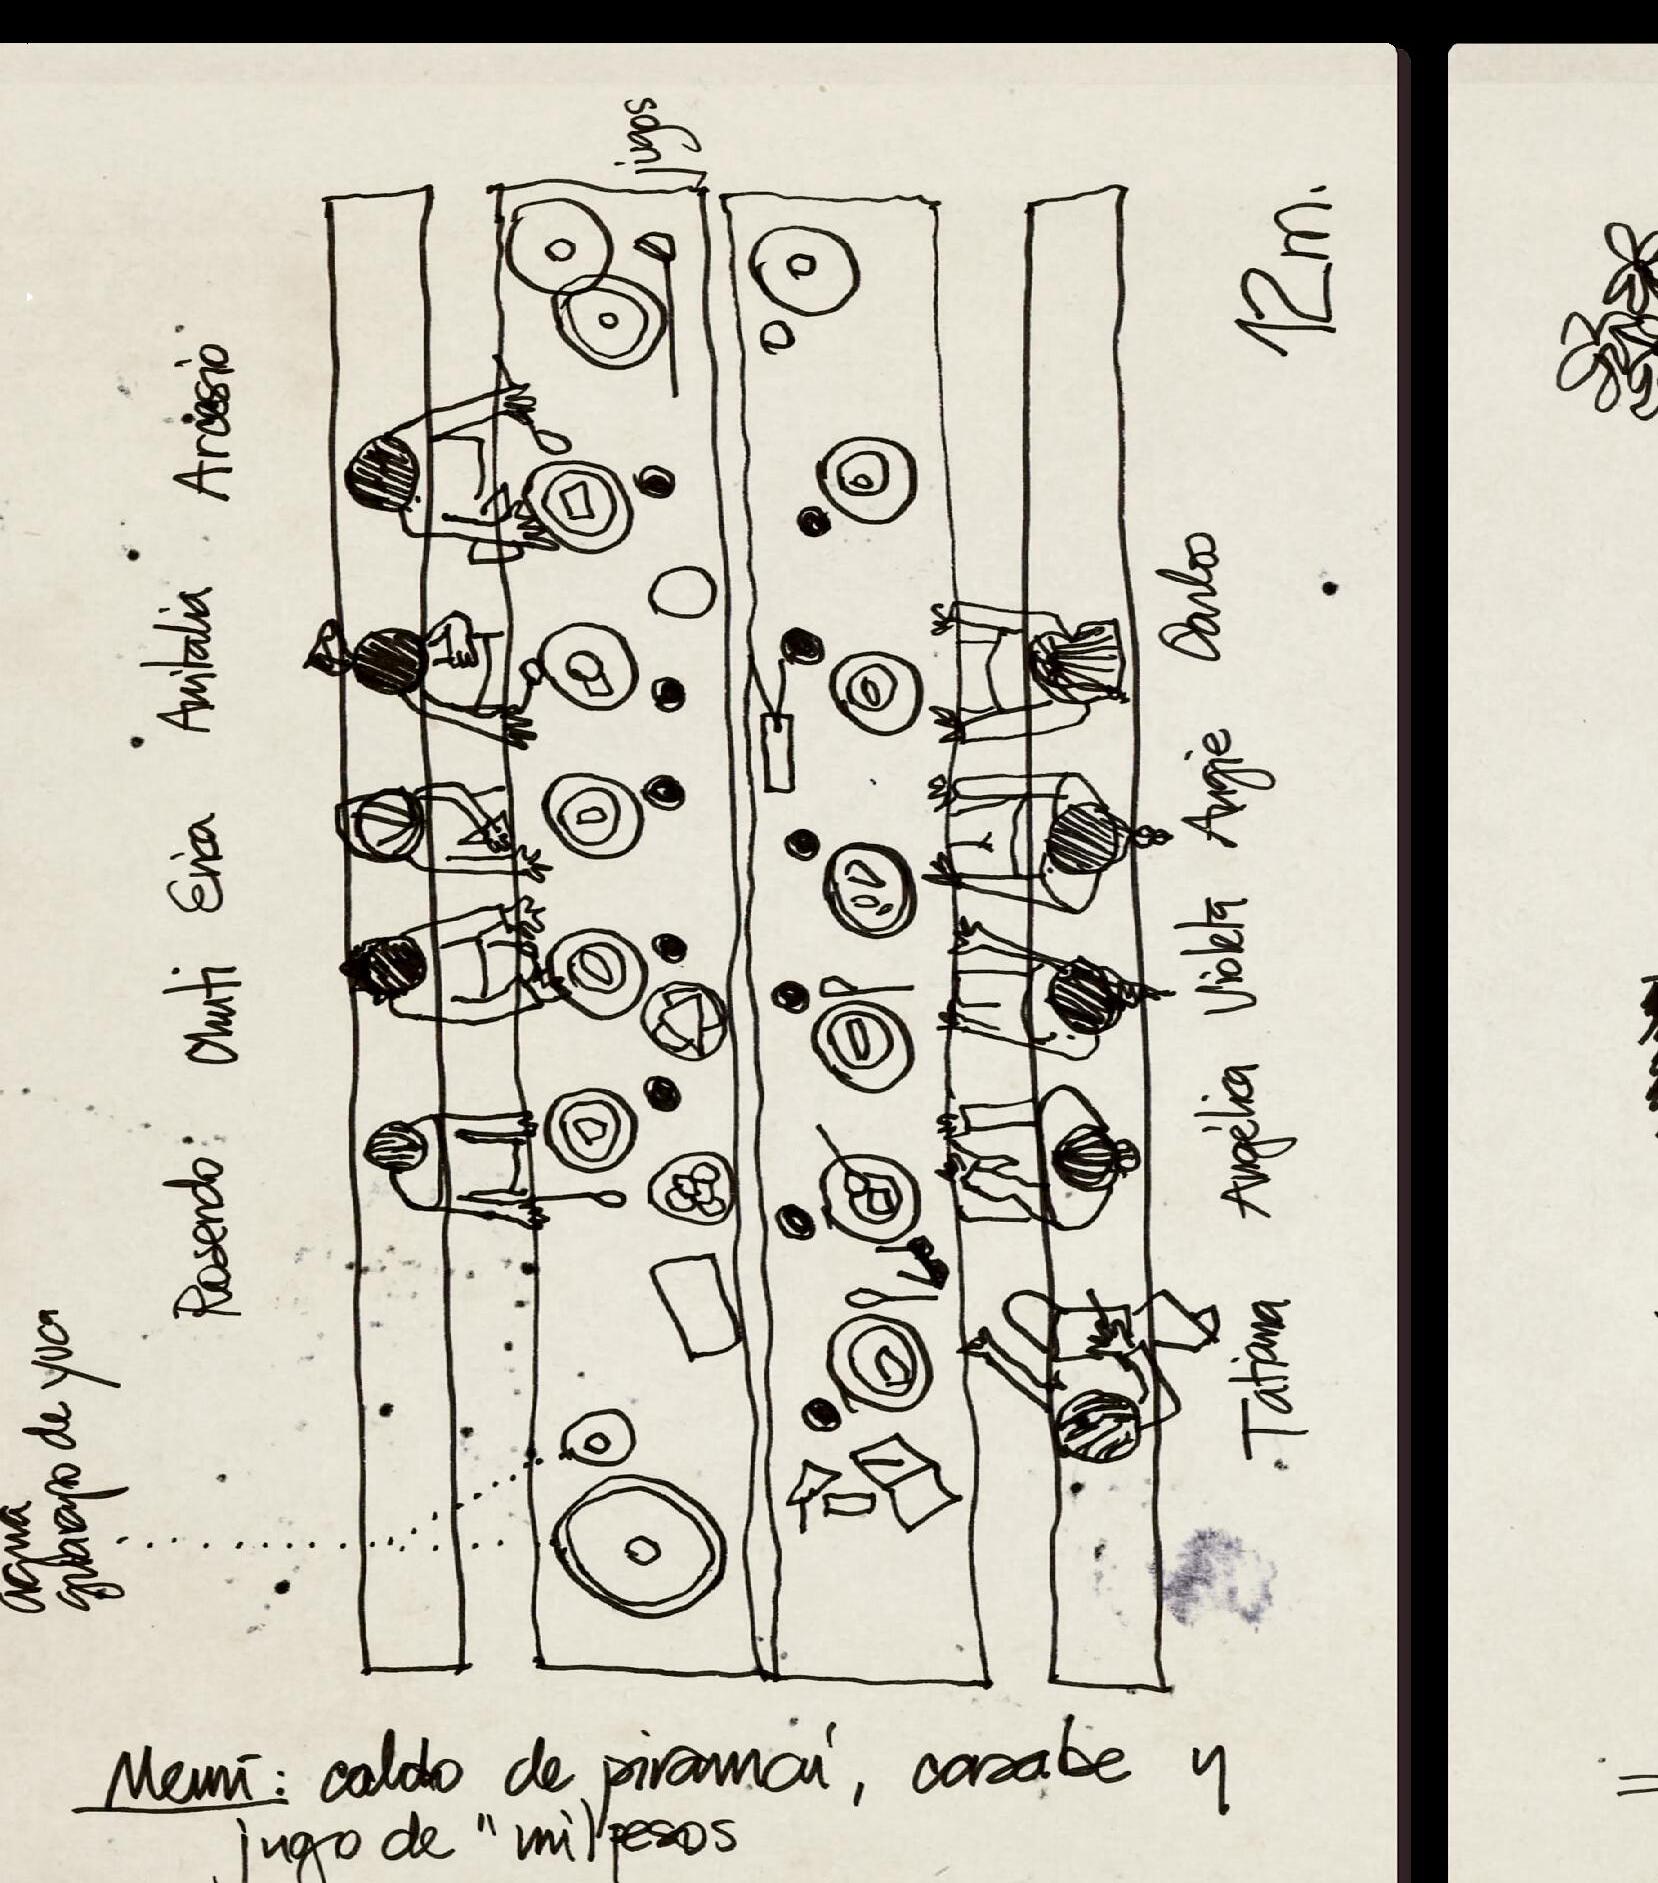 jugos
12m.
Arcesio
Anitalia
Eria
Chuti
Rosendo
Carlos
Angie
Violeta
Angélica
Tatiana
agua
guarapo de yuca
Menú: caldo de piramai, casabe y
jugo de "milpesos